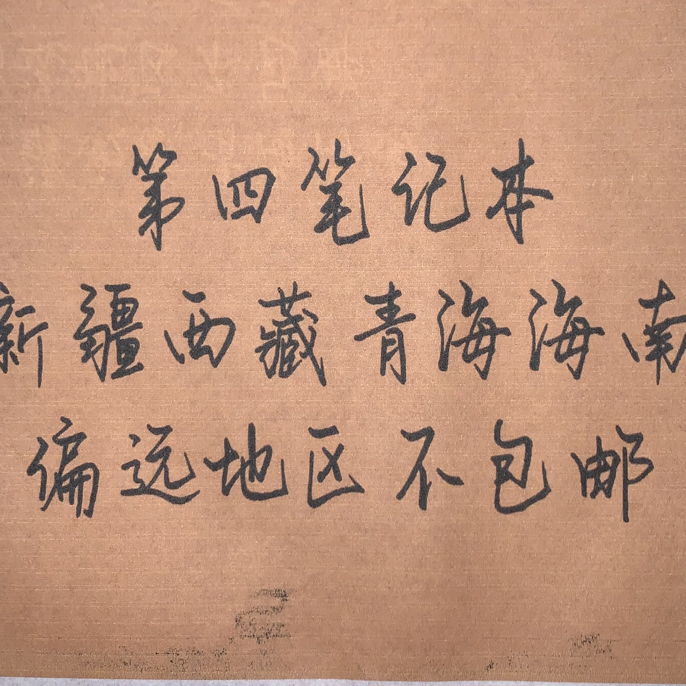 第四笔记本
新疆西藏青海海南
偏远地区不包邮